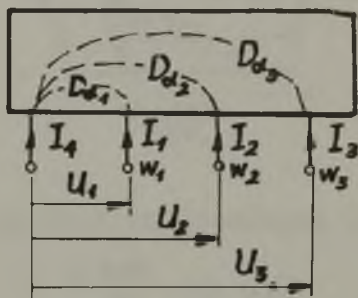 Dd₃
Dd₂
Dd₁
I₄ I₁ I₂ I₃
w₁ w₂ w₃
U₁
U₂
U₃